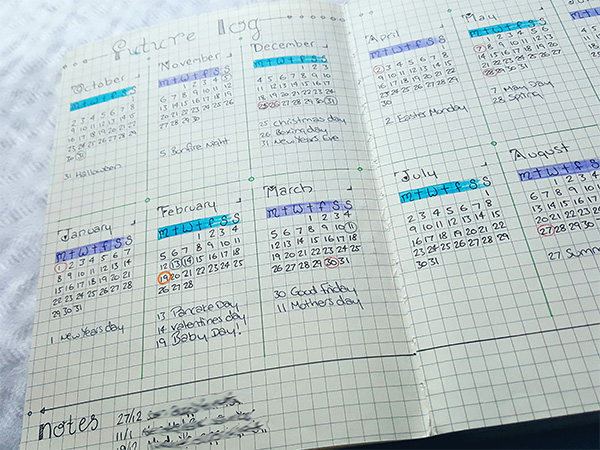 Future log
October
M T W T F S S
1
2 3 4 5 6 7 8
9 10 11 12 13 14 15
16 17 18 19 20 21 22
23 24 25 26 27 28 29
30 31
31 Halloween
November
M T W T F S S
1 2 3 4 5
6 7 8 9 10 11 12
13 14 15 16 17 18 19
20 21 22 23 24 25 26
27 28 29 30
5 Bonfire Night
December
M T W T F S S
1 2 3
4 5 6 7 8 9 10
11 12 13 14 15 16 17
18 19 20 21 22 23 24
25 26 27 28 29 30 31
25 Christmas day
26 Boxing day
31 New Years Eve
January
M T W T F S S
1 2 3 4 5 6 7
8 9 10 11 12 13 14
15 16 17 18 19 20 21
22 23 24 25 26 27 28
29 30 31
1 New Years day
February
M T W T F S S
1 2 3 4
5 6 7 8 9 10 11
12 13 14 15 16 17 18
19 20 21 22 23 24 25
26 27 28
13 Pancake Day
14 Valentines day
19 Baby Day!
March
M T W T F S S
1 2 3 4
5 6 7 8 9 10 11
12 13 14 15 16 17 18
19 20 21 22 23 24 25
26 27 28 29 30 31
30 Good Friday
11 Mothers day
notes
27/12
11/1
19/2
April
M T W T F S S
1
2 3 4 5 6 7 8
9 10 11 12 13 14 15
16 17 18 19 20 21 22
23 24 25 26 27 28 29
30
2 Easter Monday
May
M T W T F S S
1 2 3 4 5 6
7 8 9 10 11 12 13
14 15 16 17 18 19 20
21 22 23 24 25 26 27
28 29 30 31
7 May Day
28 Spring
July
M T W T F S S
1
2 3 4 5 6 7 8
9 10 11 12 13 14 15
16 17 18 19 20 21 22
23 24 25 26 27 28 29
30 31
August
M T W T F S
1 2 3 4
6 7 8 9 10 11
13 14 15 16 17
20 21 22 23 24
27 28 29 30 31
27